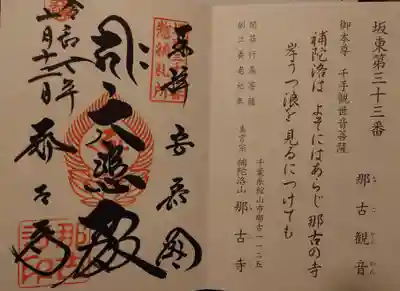 坂東第三十三番 那古観音
御本尊 千手観世音菩薩
補陀洛は よそにはあらじ 那古の寺
岸うつ浪を 見るにつけても
開基 行基菩薩
創立 養老元年
千葉県館山市那古一一二五
真言宗 補陀洛山 那古寺
奉拝
大悲殿
令和六年
那古寺